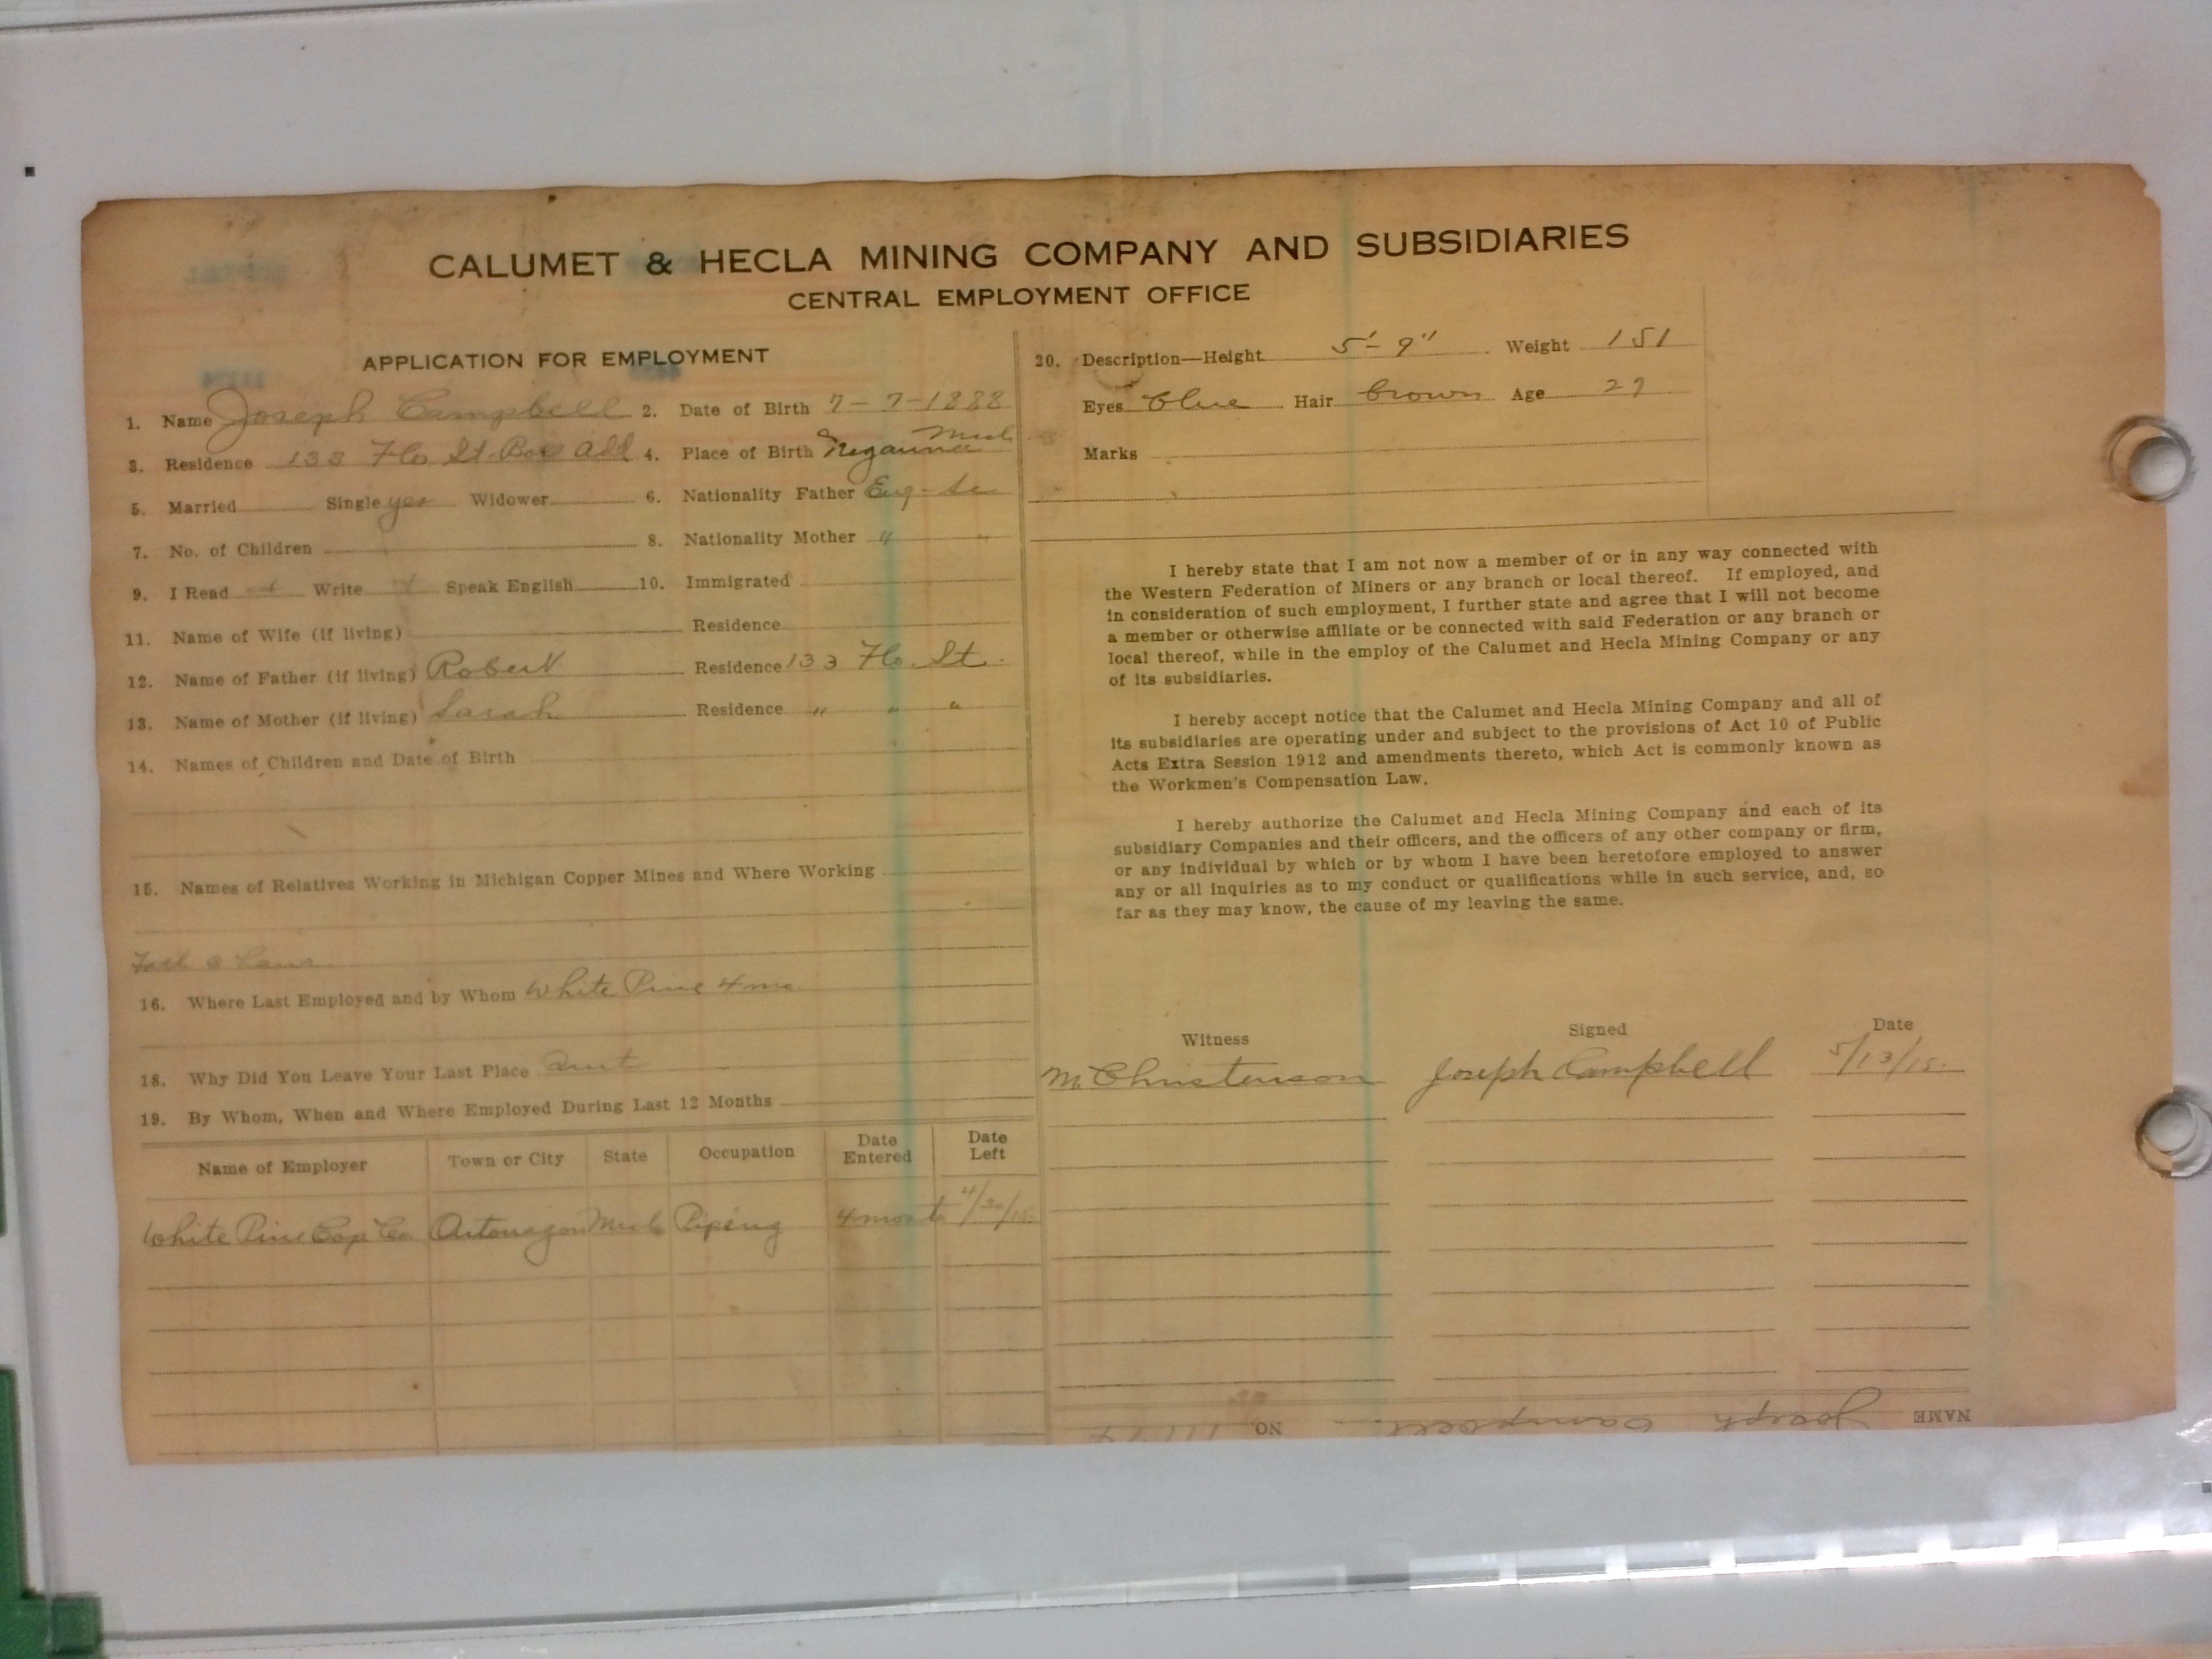 CALUMET & HECLA MINING COMPANY AND SUBSIDIARIES
CENTRAL EMPLOYMENT OFFICE
APPLICATION FOR EMPLOYMENT
1. Name Joseph Campbell 2. Date of Birth 7-7-1888
3. Residence 133 Flo. St. 4. Place of Birth Negaunee Mich
5. Married Single yes Widower 6. Nationality Father Eng-Sc
7. No. of Children 8. Nationality Mother " "
9. I Read Write Speak English 10. Immigrated
11. Name of Wife (if living) Residence
12. Name of Father (if living) Robert Residence 133 Flo. St.
13. Name of Mother (if living) Sarah Residence " " "
14. Names of Children and Date of Birth
15. Names of Relatives Working in Michigan Copper Mines and Where Working
16. Where Last Employed and by Whom White Pine 4 mo
18. Why Did You Leave Your Last Place Quit
19. By Whom, When and Where Employed During Last 12 Months
Name of Employer Town or City State Occupation Date Entered Date Left
White Pine Cop Co. Mich Piping 4 mos to 4/30/15
20. Description—Height 5'-9" Weight 151
Eyes blue Hair brown Age
Marks
I hereby state that I am not now a member of or in any way connected with
the Western Federation of Miners or any branch or local thereof. If employed, and
in consideration of such employment, I further state and agree that I will not become
a member or otherwise affiliate or be connected with said Federation or any branch or
local thereof, while in the employ of the Calumet and Hecla Mining Company or any
of its subsidiaries.
I hereby accept notice that the Calumet and Hecla Mining Company and all of
its subsidiaries are operating under and subject to the provisions of Act 10 of Public
Acts Extra Session 1912 and amendments thereto, which Act is commonly known as
the Workmen's Compensation Law.
I hereby authorize the Calumet and Hecla Mining Company and each of its
subsidiary Companies and their officers, and the officers of any other company or firm,
or any individual by which or by whom I have been heretofore employed to answer
any or all inquiries as to my conduct or qualifications while in such service, and, so
far as they may know, the cause of my leaving the same.
Witness Signed Date
M. Christenson Joseph Campbell 5/13/15.
NAME Joseph Campbell NO.